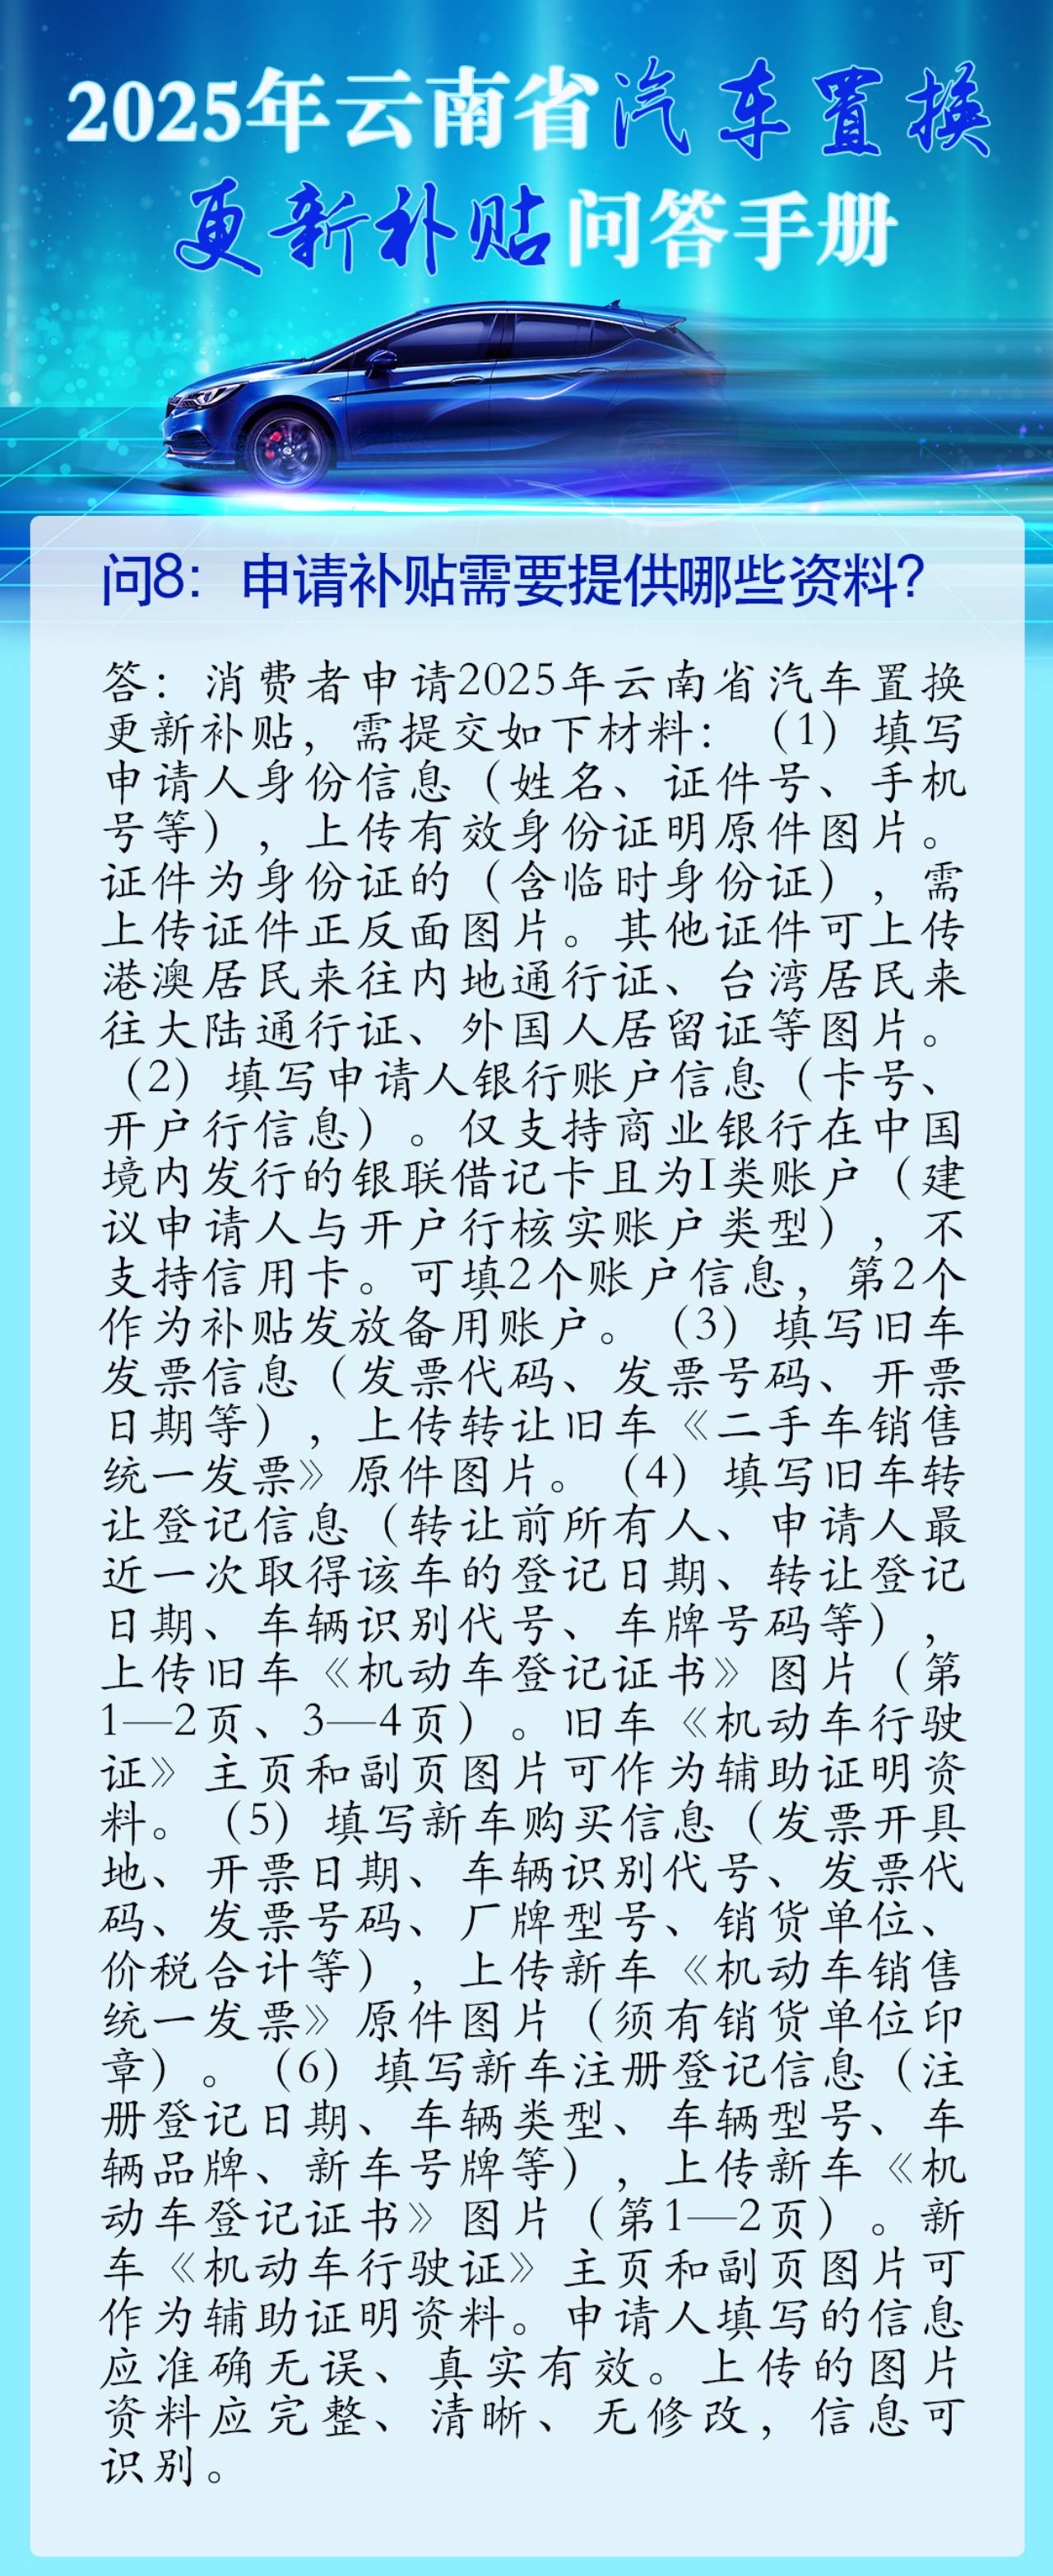 2025年云南省汽车置换
更新补贴问答手册
问8：申请补贴需要提供哪些资料？
答：消费者申请2025年云南省汽车置换
更新补贴，需提交如下材料：（1）填写
申请人身份信息（姓名、证件号、手机
号等），上传有效身份证明原件图片。
证件为身份证的（含临时身份证），需
上传证件正反面图片。其他证件可上传
港澳居民来往内地通行证、台湾居民来
往大陆通行证、外国人居留证等图片。
（2）填写申请人银行账户信息（卡号、
开户行信息）。仅支持商业银行在中国
境内发行的银联借记卡且为I类账户（建
议申请人与开户行核实账户类型），不
支持信用卡。可填2个账户信息，第2个
作为补贴发放备用账户。（3）填写旧车
发票信息（发票代码、发票号码、开票
日期等），上传转让旧车《二手车销售
统一发票》原件图片。（4）填写旧车转
让登记信息（转让前所有人、申请人最
近一次取得该车的登记日期、转让登记
日期、车辆识别代号、车牌号码等），
上传旧车《机动车登记证书》图片（第
1—2页、3—4页）。旧车《机动车行驶
证》主页和副页图片可作为辅助证明资
料。（5）填写新车购买信息（发票开具
地、开票日期、车辆识别代号、发票代
码、发票号码、厂牌型号、销货单位、
价税合计等），上传新车《机动车销售
统一发票》原件图片（须有销货单位印
章）。（6）填写新车注册登记信息（注
册登记日期、车辆类型、车辆型号、车
辆品牌、新车号牌等），上传新车《机
动车登记证书》图片（第1—2页）。新
车《机动车行驶证》主页和副页图片可
作为辅助证明资料。申请人填写的信息
应准确无误、真实有效。上传的图片
资料应完整、清晰、无修改，信息可
识别。